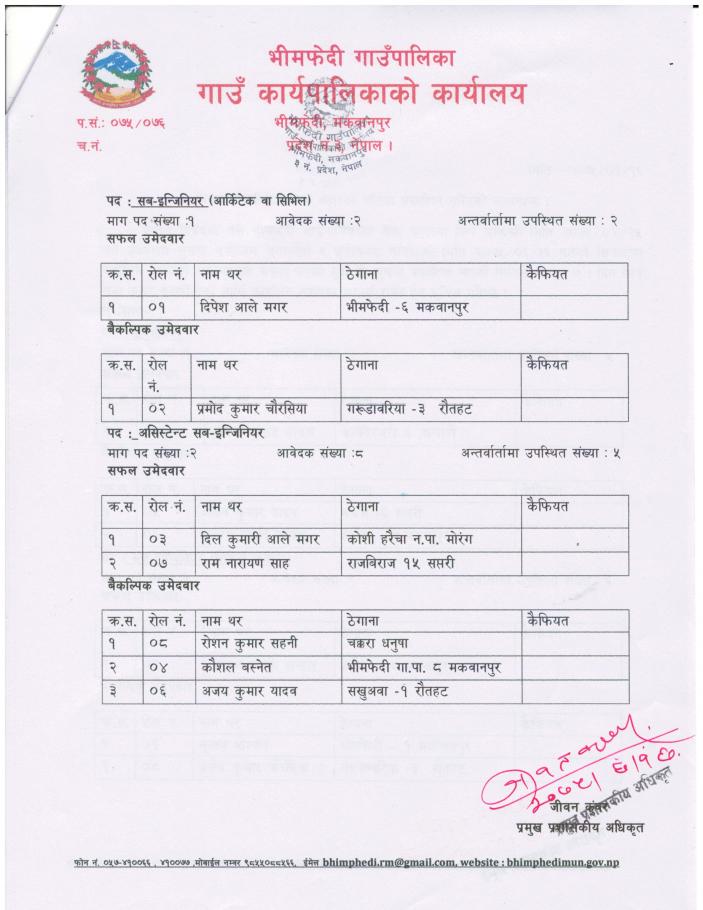 भीमफेदी गाउँपालिका
गाउँ कार्यपालिकाको कार्यालय
प.सं.: ०७५/०७६
भीमफेदी, मकवानपुर
च.नं.
प्रदेश नं ३, नेपाल ।
भीमफेदी, मकवानपुर
३ नं. प्रदेश, नेपाल
पद : सब-इन्जिनियर (आर्किटेक वा सिभिल)
माग पद संख्या :१ आवेदक संख्या :२ अन्तर्वार्तामा उपस्थित संख्या : २
सफल उमेदवार
क्र.स. रोल नं. नाम थर ठेगाना कैफियत
१ ०१ दिपेश आले मगर भीमफेदी -६ मकवानपुर
बैकल्पिक उमेदवार
क्र.स. रोल नं. नाम थर ठेगाना कैफियत
१ ०२ प्रमोद कुमार चौरसिया गरूडावरिया -३ रौतहट
पद : असिस्टेन्ट सब-इन्जिनियर
माग पद संख्या :२ आवेदक संख्या :८ अन्तर्वार्तामा उपस्थित संख्या : ५
सफल उमेदवार
क्र.स. रोल नं. नाम थर ठेगाना कैफियत
१ ०३ दिल कुमारी आले मगर कोशी हरैचा न.पा. मोरंग
२ ०७ राम नारायण साह राजबिराज १५ सप्तरी
बैकल्पिक उमेदवार
क्र.स. रोल नं. नाम थर ठेगाना कैफियत
१ ०८ रोशन कुमार सहनी चक्करा धनुषा
२ ०४ कौशल बस्नेत भीमफेदी गा.पा. ८ मकवानपुर
३ ०६ अजय कुमार यादव सखुअवा -१ रौतहट
जीवन कुंवर
प्रमुख प्रशासकीय अधिकृत
प्रमुख प्रशासकीय अधिकृत
फोन नं. ०५७-४१००६६ , ४१००७७ ,मोबाईल नम्बर ९८५५०८८५६६, ईमेल bhimphedi.rm@gmail.com, website : bhimphedimun.gov.np